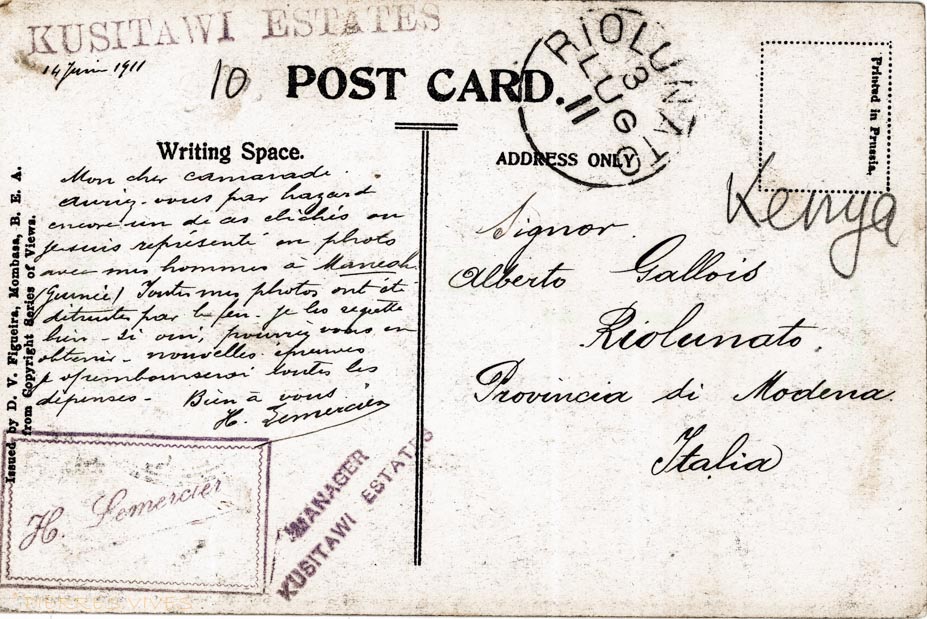 KUSITAWI ESTATES
14 Juin 1911
10
POST CARD.
RIOLUNATO
3 LUG 11
Printed in Prussia.
Kenya
Writing Space.
ADDRESS ONLY
Issued by D. V. Figueira, Mombasa, B. E. A.
from Copyright Series of Views.
Mon cher camarade
Auriez-vous par hazard
encore un de ces clichés où
je suis représenté en photo
avec mes hommes à
(Guinée) Toutes mes photos ont été
détruites par le feu. je les regrette
bien - si oui, pourriez vous en
obtenir - nouvelles épreuves
je rembourserai toutes les
dépenses - Bien à vous
H. Lemercier
Signor
Alberto Gallois
Riolunato.
Provincia di Modena
Italia
H. Lemercier
MANAGER
KUSITAWI ESTATES